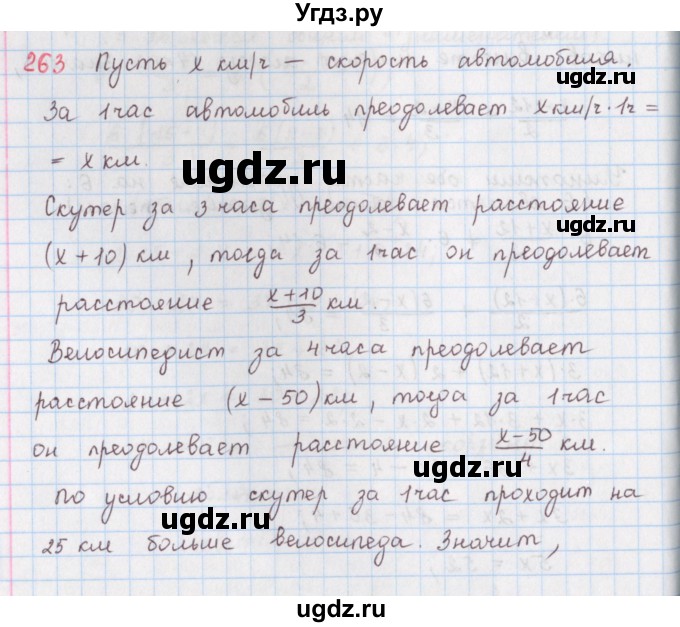 Угдз.ру
263 Пусть x км/ч — скорость автомобиля.
ugdz.ru
За 1 час автомобиль преодолевает x км/ч · 1ч =
= x км.
ugdz.ru
Скутер за 3 часа преодолевает расстояние
(x + 10) км, тогда за 1 час он преодолевает
ugdz.ru
расстояние x+10/3 км.
Велосипедист за 4 часа преодолевает
ugdz.ru
расстояние (x – 50) км, тогда за 1 час
он преодолевает расстояние x–50/4 км.
По условию скутер за 1 час проходит на
ugdz.ru
25 км больше велосипеда. Значит,
ugdz.ru